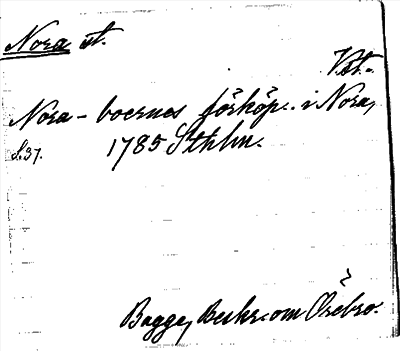 Nora st.
Vst.
Nora-boernes förköp. i Nora,
s.37. 1785 Sthlm.
Bagge, Beskr. om Örebro.